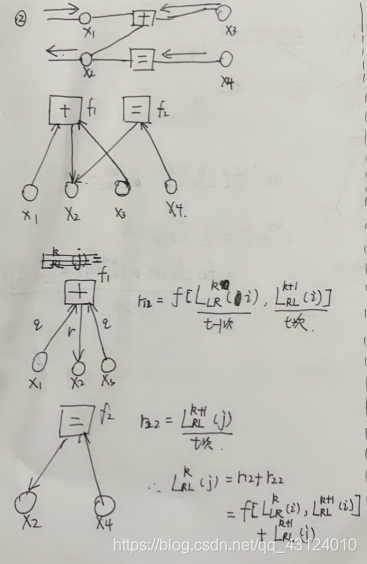 ②
x₁ + x₃
x₂ = x₄
+ f₁ = f₂
x₁ x₂ x₃ x₄.
f₁
+
q r q
x₁ x₂ x₃
r₁₂ = f[L^k_LR(i), L^{k+1}_RL(i)]
t-1次 t次.
= f₂
x₂ x₄
r₂₂ = L^{k+1}_RL(j)
t次.
∴ L^k_RL(j) = r₁₂+r₂₂
= f[L^k_LR(i), L^{k+1}_RL(i)]
+ L^{k+1}_RL(j)
https://blog.csdn.net/qq_43124010